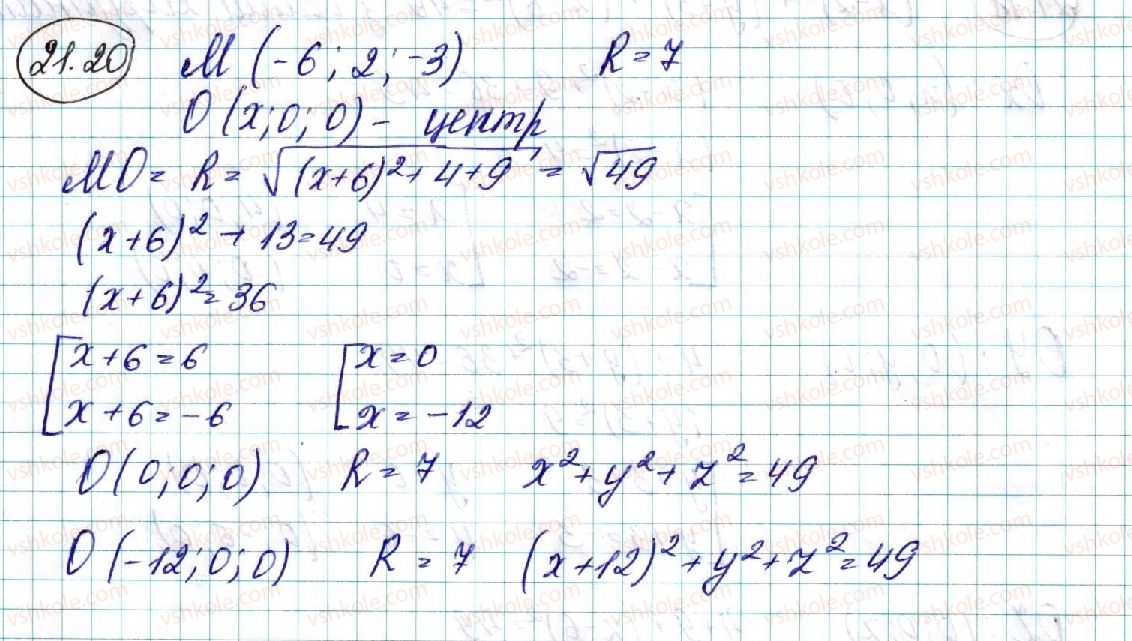 21.20 M (-6; 2; -3) R = 7
O (x; 0; 0) - центр
MO = R = √((x+6)² + 4 + 9) = √49
(x+6)² + 13 = 49
(x+6)² = 36
[x+6 = 6 [x = 0
x+6 = -6 x = -12
O (0; 0; 0) R = 7 x² + y² + z² = 49
O (-12; 0; 0) R = 7 (x+12)² + y² + z² = 49
vshkole.com